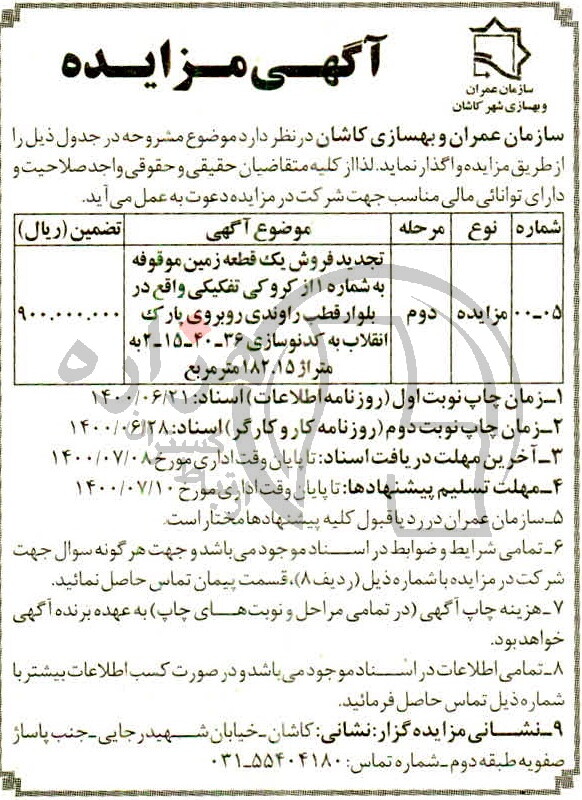 سازمان عمران
و بهسازی شهر کاشان
آگهی مزایده
سازمان عمران و بهسازی کاشان در نظر دارد موضوع مشروحه در جدول ذیل را
از طریق مزایده واگذار نماید. لذا از کلیه متقاضیان حقیقی و حقوقی واجد صلاحیت و
دارای توانائی مالی مناسب جهت شرکت در مزایده دعوت به عمل می‌آید.
شماره نوع مرحله موضوع آگهی تضمین (ریال)
تجدید فروش یک قطعه زمین موقوفه
به شماره ۱ از کروکی تفکیکی واقع در
۰۰-۰۵ مزایده دوم بلوار قطب راوندی روبروی پارک ۹۰۰.۰۰۰.۰۰۰
انقلاب به کدنوسازی ۳۶-۴۰-۱۵-۲ به
متراژ ۱۸۲.۱۵ مترمربع
۱-زمان چاپ نوبت اول (روزنامه اطلاعات) اسناد: ۱۴۰۰/۰۶/۲۱
۲-زمان چاپ نوبت دوم (روزنامه کار و کارگر) اسناد: ۱۴۰۰/۰۶/۲۸
۳-آخرین مهلت دریافت اسناد: تا پایان وقت اداری مورخ ۱۴۰۰/۰۷/۰۸
۴-مهلت تسلیم پیشنهادها: تا پایان وقت اداری مورخ ۱۴۰۰/۰۷/۱۰
۵-سازمان عمران در رد یا قبول کلیه پیشنهادها مختار است.
۶-تمامی شرایط و ضوابط در اسناد موجود می‌باشد و جهت هر گونه سوال جهت
شرکت در مزایده با شماره ذیل (ردیف ۸)، قسمت پیمان تماس حاصل نمائید.
۷-هزینه چاپ آگهی (در تمامی مراحل و نوبت‌های چاپ) به عهده برنده آگهی
خواهد بود.
۸-تمامی اطلاعات در اسناد موجود می‌باشد و در صورت کسب اطلاعات بیشتر با
شماره ذیل تماس حاصل فرمائید.
۹-نشانی مزایده گزار: نشانی: کاشان-خیابان شهید رجایی-جنب پاساژ
صفویه طبقه دوم-شماره تماس: ۵۵۴۰۴۱۸۰-۰۳۱